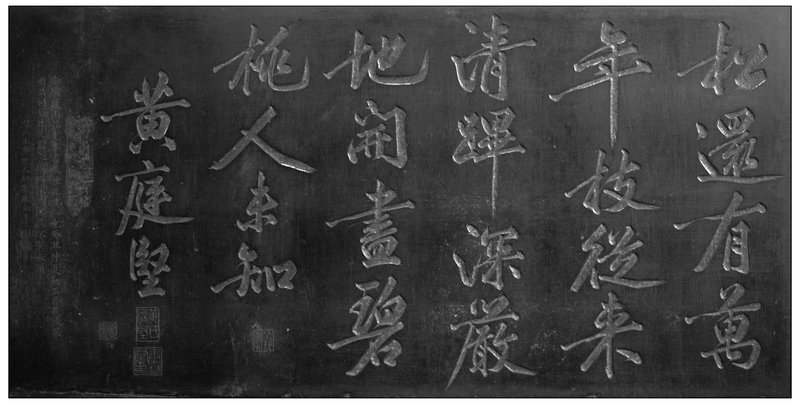 松還有萬
年枝從来
清蹕深嚴
地開盡碧
桃人未知
黄庭堅